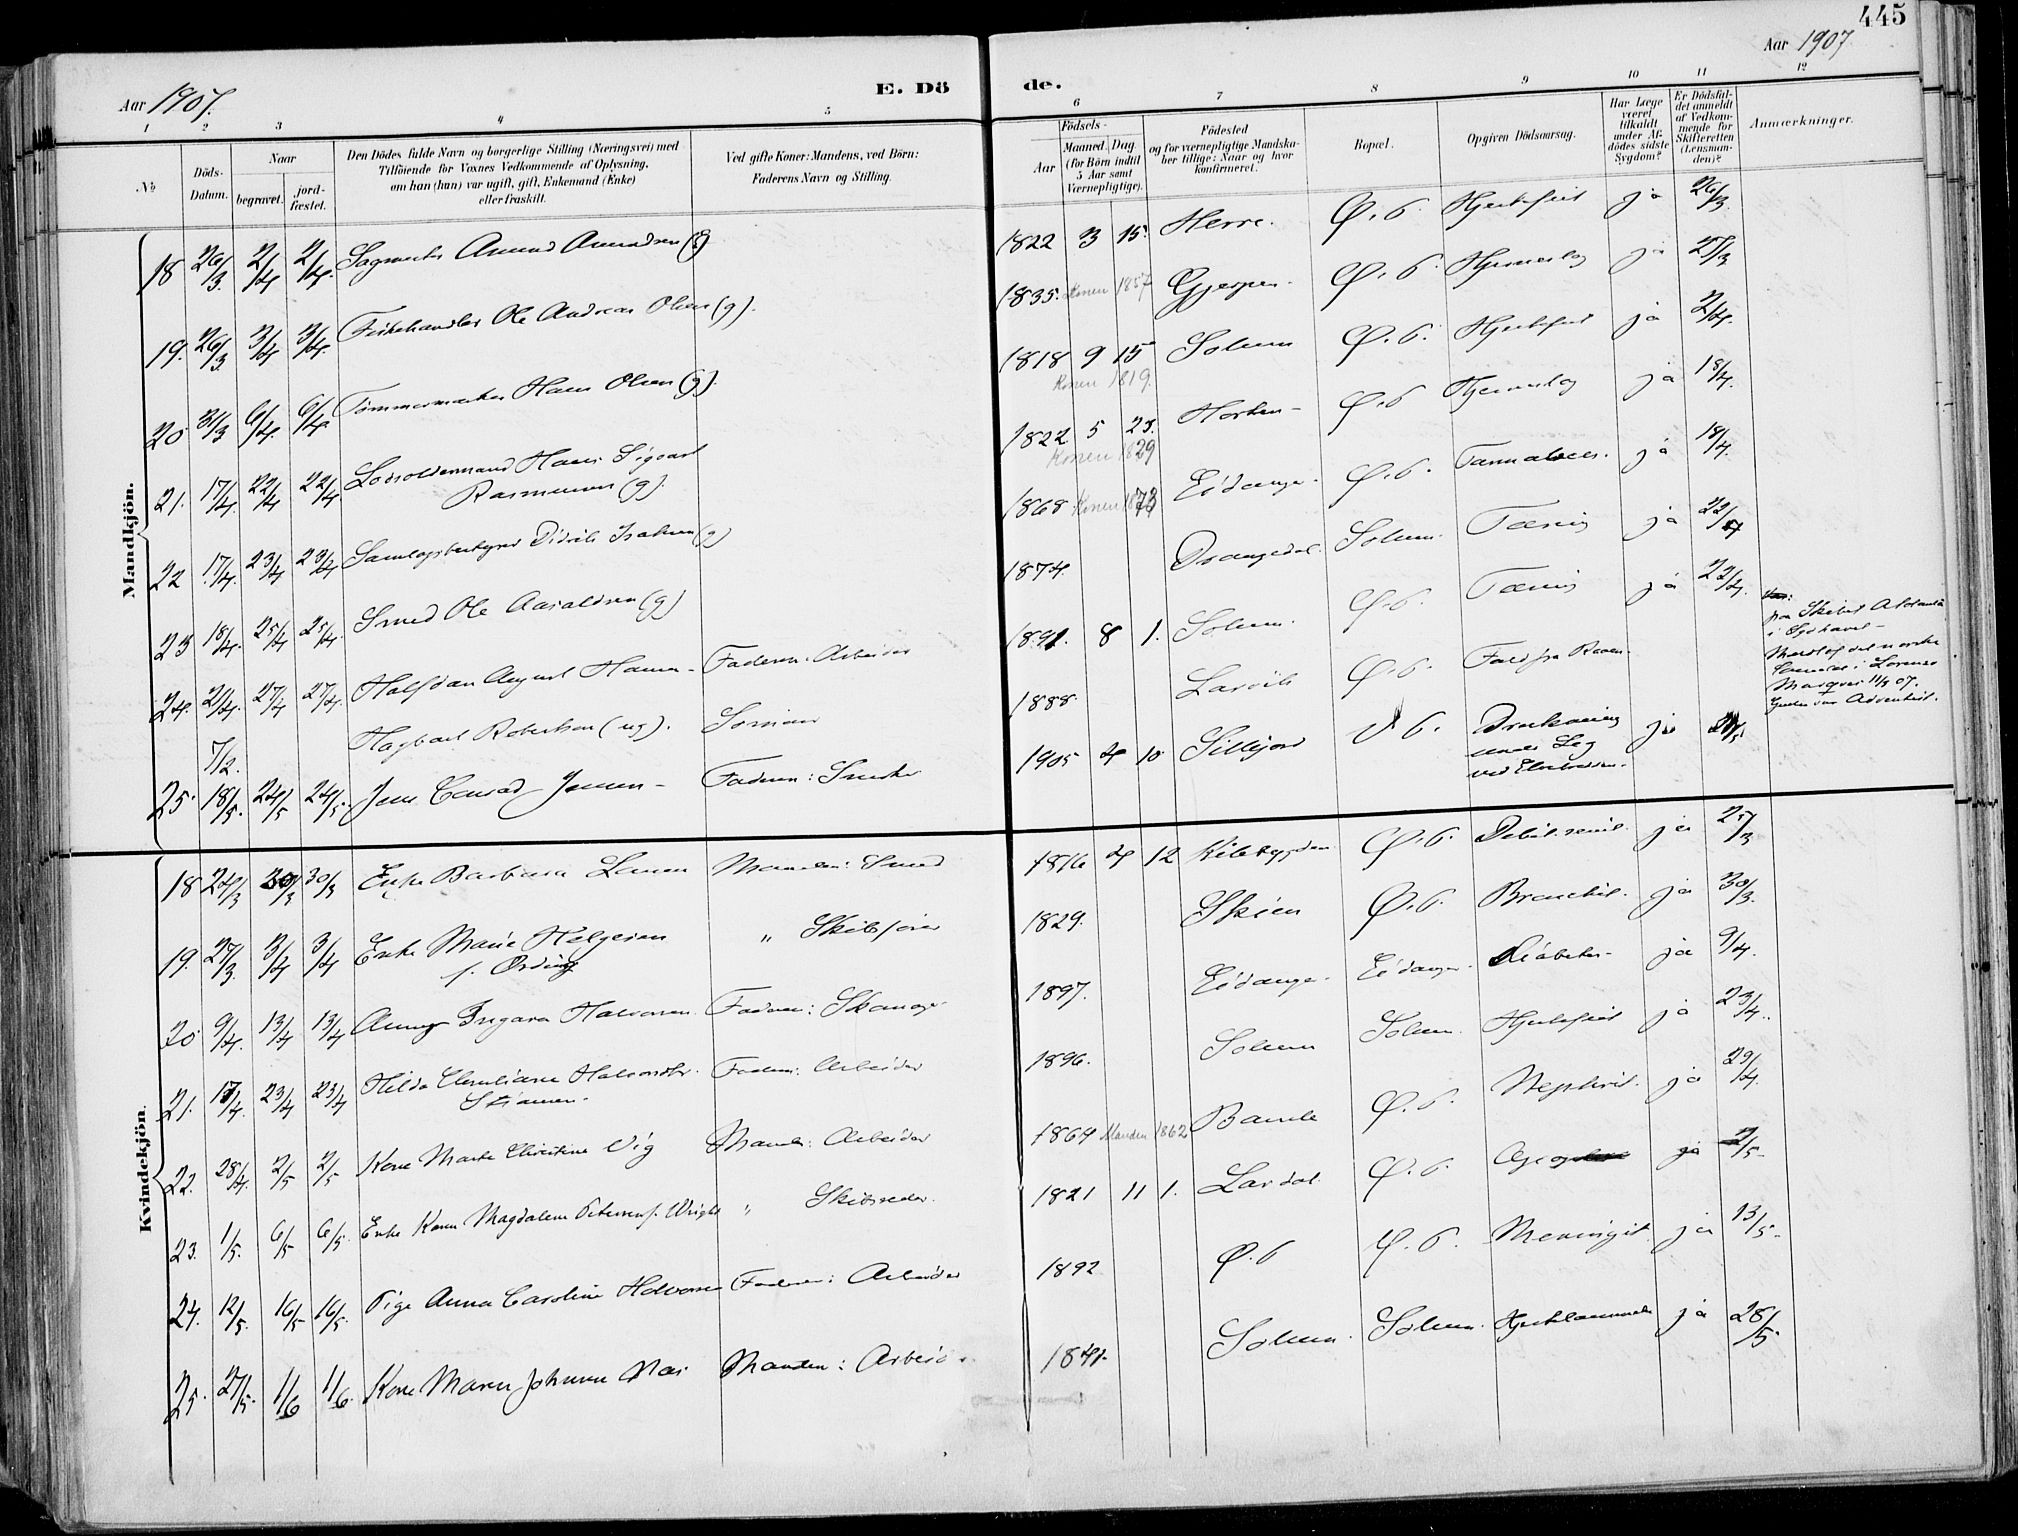 445
Aar 1907.
Aar 1907.
E. Dö
de.
1 2 3 4 5
6 7 8 9 10 11 12
№
Döds-
Datum.
Naar
begravet.
jord-
fæstet.
Den Dödes fulde Navn og borgerlige Stilling (Næringsvei) med
Tilföiende for Voxnes Vedkommende af Oplysning,
om han (hun) var ugift, gift, Enkemand (Enke)
eller fraskilt.
Ved gifte Koner: Mandens, ved Börn:
Faderens Navn og Stilling.
Födsels-
Aar
Maaned. Dag.
(for Börn indtil
5 Aar samt
Værnepligtige).
Födested
og for værnepligtige Mandska-
ber tillige: Naar og hvor
konfirmeret.
Bopæl.
Opgiven Dödsaarsag.
Har Læge
været
tilkaldt
under Af-
dödes sidste
Sygdom?
Er Dödsfal-
det anmeldt
af Vedkom-
mende for
Skifteretten
(Lensman-
den)?
Anmærkninger.
Mandkjön.
18 26/3. 2/4 2/4. Sagmester Amund Amundsen (g) 1822 3 15. Herre. Ø.b. Hjertefeil ja 26/3.
19. 26/3. 3/4 3/4. Fiskehandler Ole Andreas Olsen (g). 1835. Konen 1857 Gjerpen. Ø.b. ja 27/3
20 31/3 6/4. 6/4 Tømmermærker Hans Olsen (g). 1818 9 15 Solum Ø.b. Hjertefeil ja 2/4.
Konen 1819.
21. 17/4. 22/4 22/4 Lodsoldermand Hans Sigvart 1822 5 23. Ø.b ja 18/4.
Rasmussen (g). Konen 1829
22 17/4. 23/4 23/4 Samlagsbestyrer Didrik Isaksen (g) 1868 Konen 1873 Eidanger Ø.b. ja 18/4.
23 18/4. 25/4 25/4. Smed Ole (g) 1874. Drangedal. Solum. Tæring ja 22/4
24. 21/4. 27/4 27/4. Halfdan August Hansen – Faderen: Arbeider 1891. 8 1. Solum. Ø.b. Tæring ja 22/4.
7/2. Hagbart Robertsen (ug). Sømand 1888. Larvik Ø.b. Fald fra Raaen.
fra Skibet
i Sydhavet –
Meddelt af det norske
Consulat i Lorenzo
Marquez 11/3 07.
25. 18/5. 24/5 24/5. Jens Conrad Jensen – Faderen: Snedker 1905 4 10 Ø.b. Drukning ja 21/5
under Leg
ved
Kvindekjön.
18 24/3 30/3 30/3 Enke Barbara Larsen Manden: Smed 1816 4 12 Kilebygden Ø.b. Debil. senil. ja 25/3
19. 27/3. 3/4 3/4 Enke Marie Helgesen „ Skibsfører 1829. Skien Ø.b. ja 30/3.
f. Ording
20 9/4. 13/4 13/4 Anny Ingara Halvorsen Faderen: 1897. Eidanger. Eidanger. Diabetes – ja 9/4.
21. 17/4. 23/4 23/4 Hilda Halvordtr. Faderen: Arbeider 1896. Solum Solum. Hjertefeil ja 23/4.
22. 28/4. 2/5 2/5 Kone Marte Christine Vig Manden: Arbeider 1864 Manden 1862 Bamle Ø.b. Nephrit. ja 29/4.
23. 1/5. 6/5 6/5. Enke Karen Magdalene Petersen f. Wright „ Skibsreder. 1821 11 1. Lardal. Ø.b. ja 2/5.
24. 12/5. 16/5 16/5. Pige Anna Caroline Halvorsen Faderen: Arbeider 1892 Ø.b Ø.b. Meningit. ja 13/5.
25. 27/5. 1/6 1/6. Kone Maren Johanne Næs Manden: Arbeider. 1841. Solum. Solum. ja 28/5.